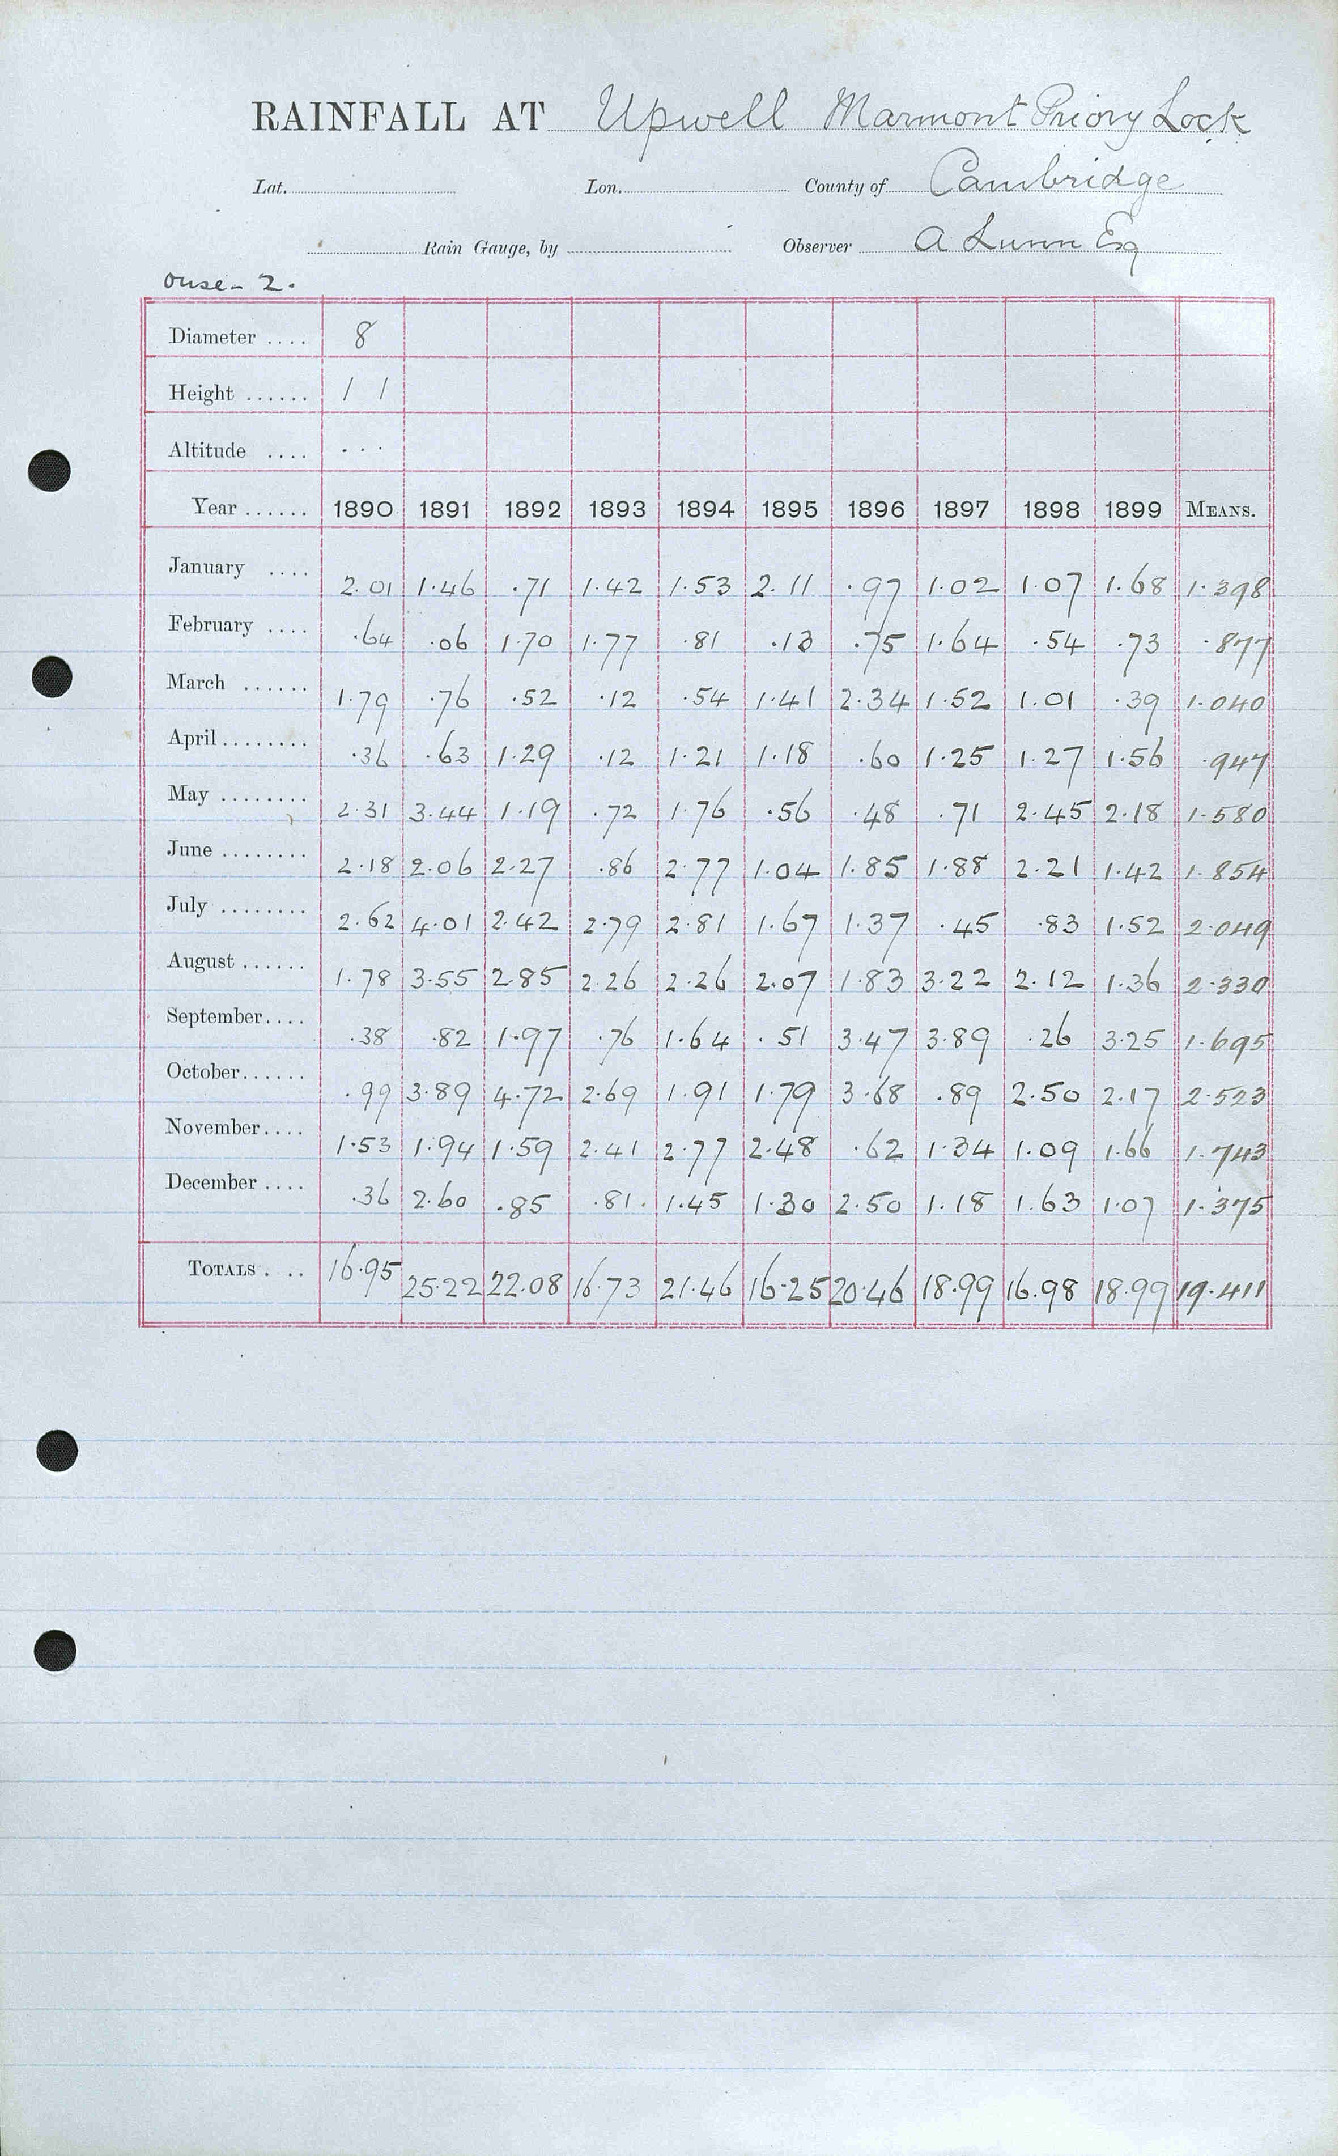 RAINFALL AT Upwell Marmont Priory Lock
Lat. Lon. County of Cambridge
Rain Gauge, by Observer A Lunn Esq
Ouse - 2.
Diameter .... 8
Height ...... 1 1
Altitude .... ...
Year ...... 1890 1891 1892 1893 1894 1895 1896 1897 1898 1899 MEANS.
January .... 2.01 1.46 .71 1.42 1.53 2.11 .97 1.02 1.07 1.68 1.398
February .... .64 .06 1.70 1.77 .81 .13 .75 1.64 .54 .73 .877
March ...... 1.79 .76 .52 .12 .54 1.41 2.34 1.52 1.01 .39 1.040
April ........ .36 .63 1.29 .12 1.21 1.18 .60 1.25 1.27 1.56 .947
May ........ 2.31 3.44 1.19 .72 1.76 .56 .48 .71 2.45 2.18 1.580
June ........ 2.18 2.06 2.27 .86 2.77 1.04 1.85 1.88 2.21 1.42 1.854
July ........ 2.62 4.01 2.42 2.79 2.81 1.67 1.37 .45 .83 1.52 2.049
August ...... 1.78 3.55 2.85 2.26 2.26 2.07 1.83 3.22 2.12 1.36 2.330
September .... .38 .82 1.97 .76 1.64 .51 3.47 3.89 .26 3.25 1.695
October ...... .99 3.89 4.72 2.69 1.91 1.79 3.68 .89 2.50 2.17 2.523
November .... 1.53 1.94 1.59 2.41 2.77 2.48 .62 1.34 1.09 1.66 1.743
December .... .36 2.60 .85 .81 1.45 1.30 2.50 1.18 1.63 1.07 1.375
TOTALS .... 16.95 25.22 22.08 16.73 21.46 16.25 20.46 18.99 16.98 18.99 19.411